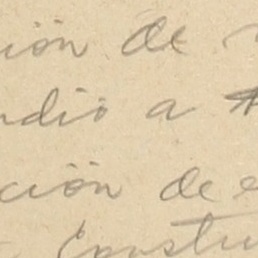 ión de
ndio a
ción de e
Constru